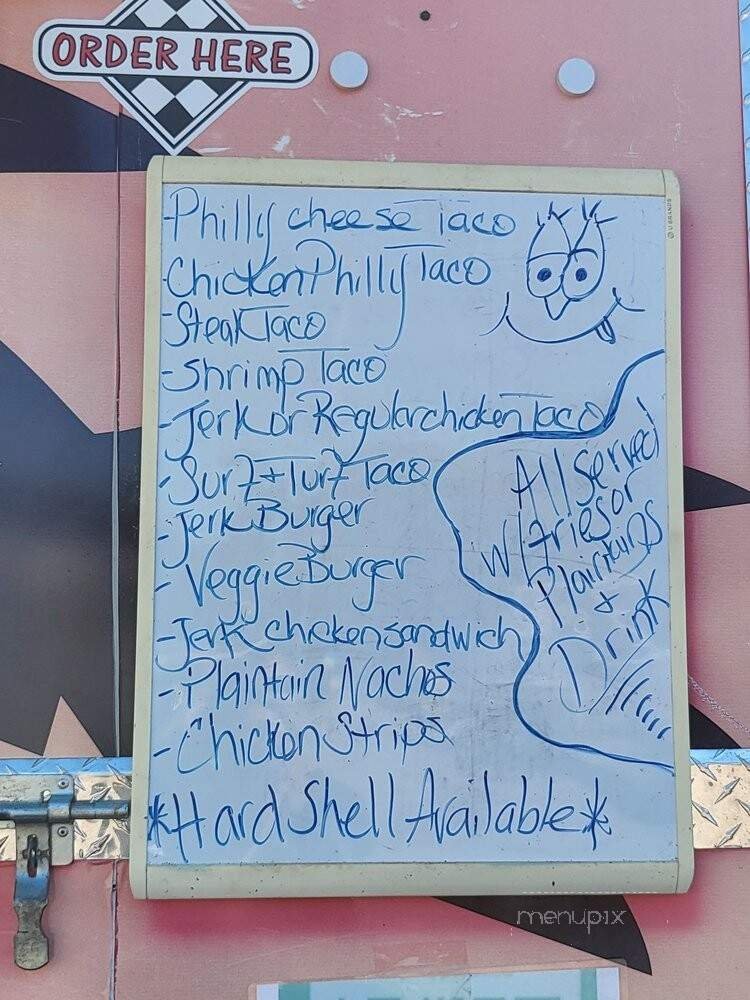 ORDER HERE
U BRANDS
-Philly cheese Taco
-Chicken Philly Taco
-Steak Taco
-Shrimp Taco
-Jerk or Regular chicken Taco
-Surf + Turf Taco
-Jerk Burger
-Veggie Burger
-Jerk chicken sandwich
-Plaintain Nachos
-Chicken Strips
*Hard Shell Available*
All Served
w/fries or
Plaintains
+
Drink
menupix